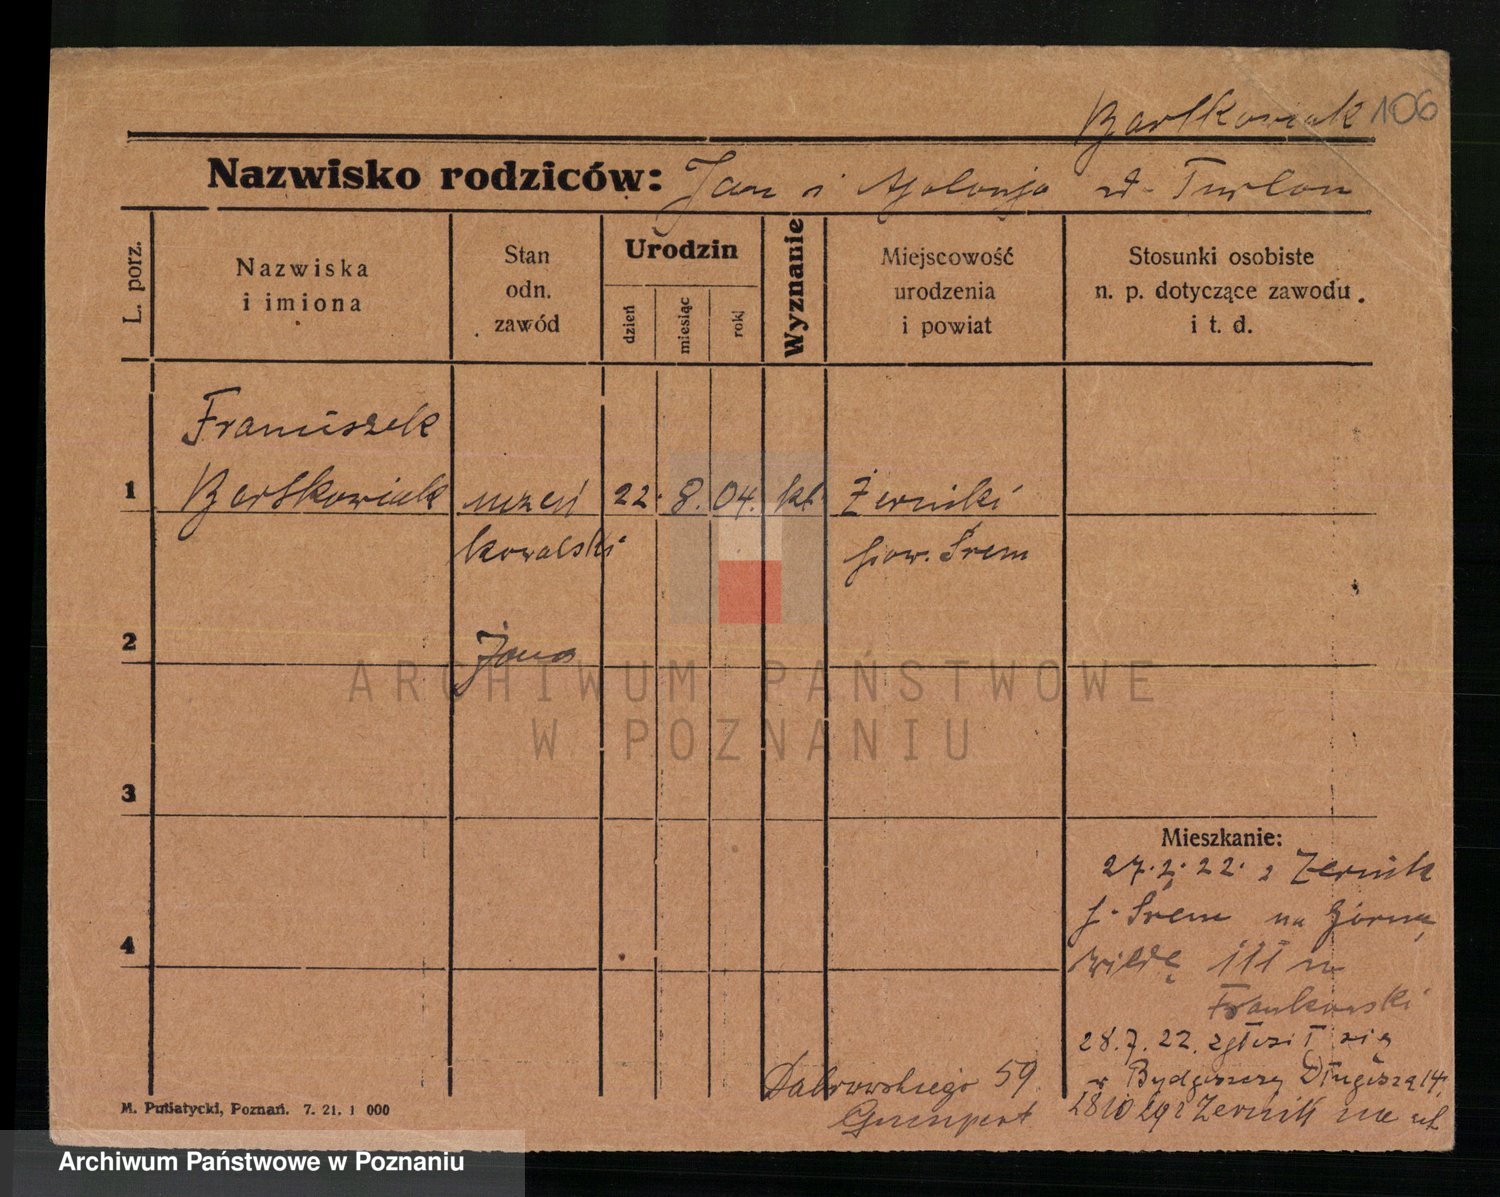 Bartkowiak 106
Nazwisko rodziców: Jan i Apolonja z d. Turlon
L. porz.
Nazwiska
i imiona
Stan
odn.
zawód
Urodzin
dzień
miesiąc
rok
Wyznanie
Miejscowość
urodzenia
i powiat
Stosunki osobiste
n. p. dotyczące zawodu
i t. d.
Franciszek
1 Bartkowiak uczeń 22. 8. 04. kt. Żerniki
kowalski pow. Śrem
2
3
4
Mieszkanie:
27.2.22. z Żernik
p. Śrem na Górną
Wildę 111 m
Frankowski
28.7.22. zgłosił się
w Bydgoszczy Długosza 14.
28 10 29 z Żernik na ul.
Dąbrowskiego 59
M. Putiatycki, Poznań. 7. 21. 1 000
ARCHIWUM PAŃSTWOWE
W POZNANIU
Archiwum Państwowe w Poznaniu